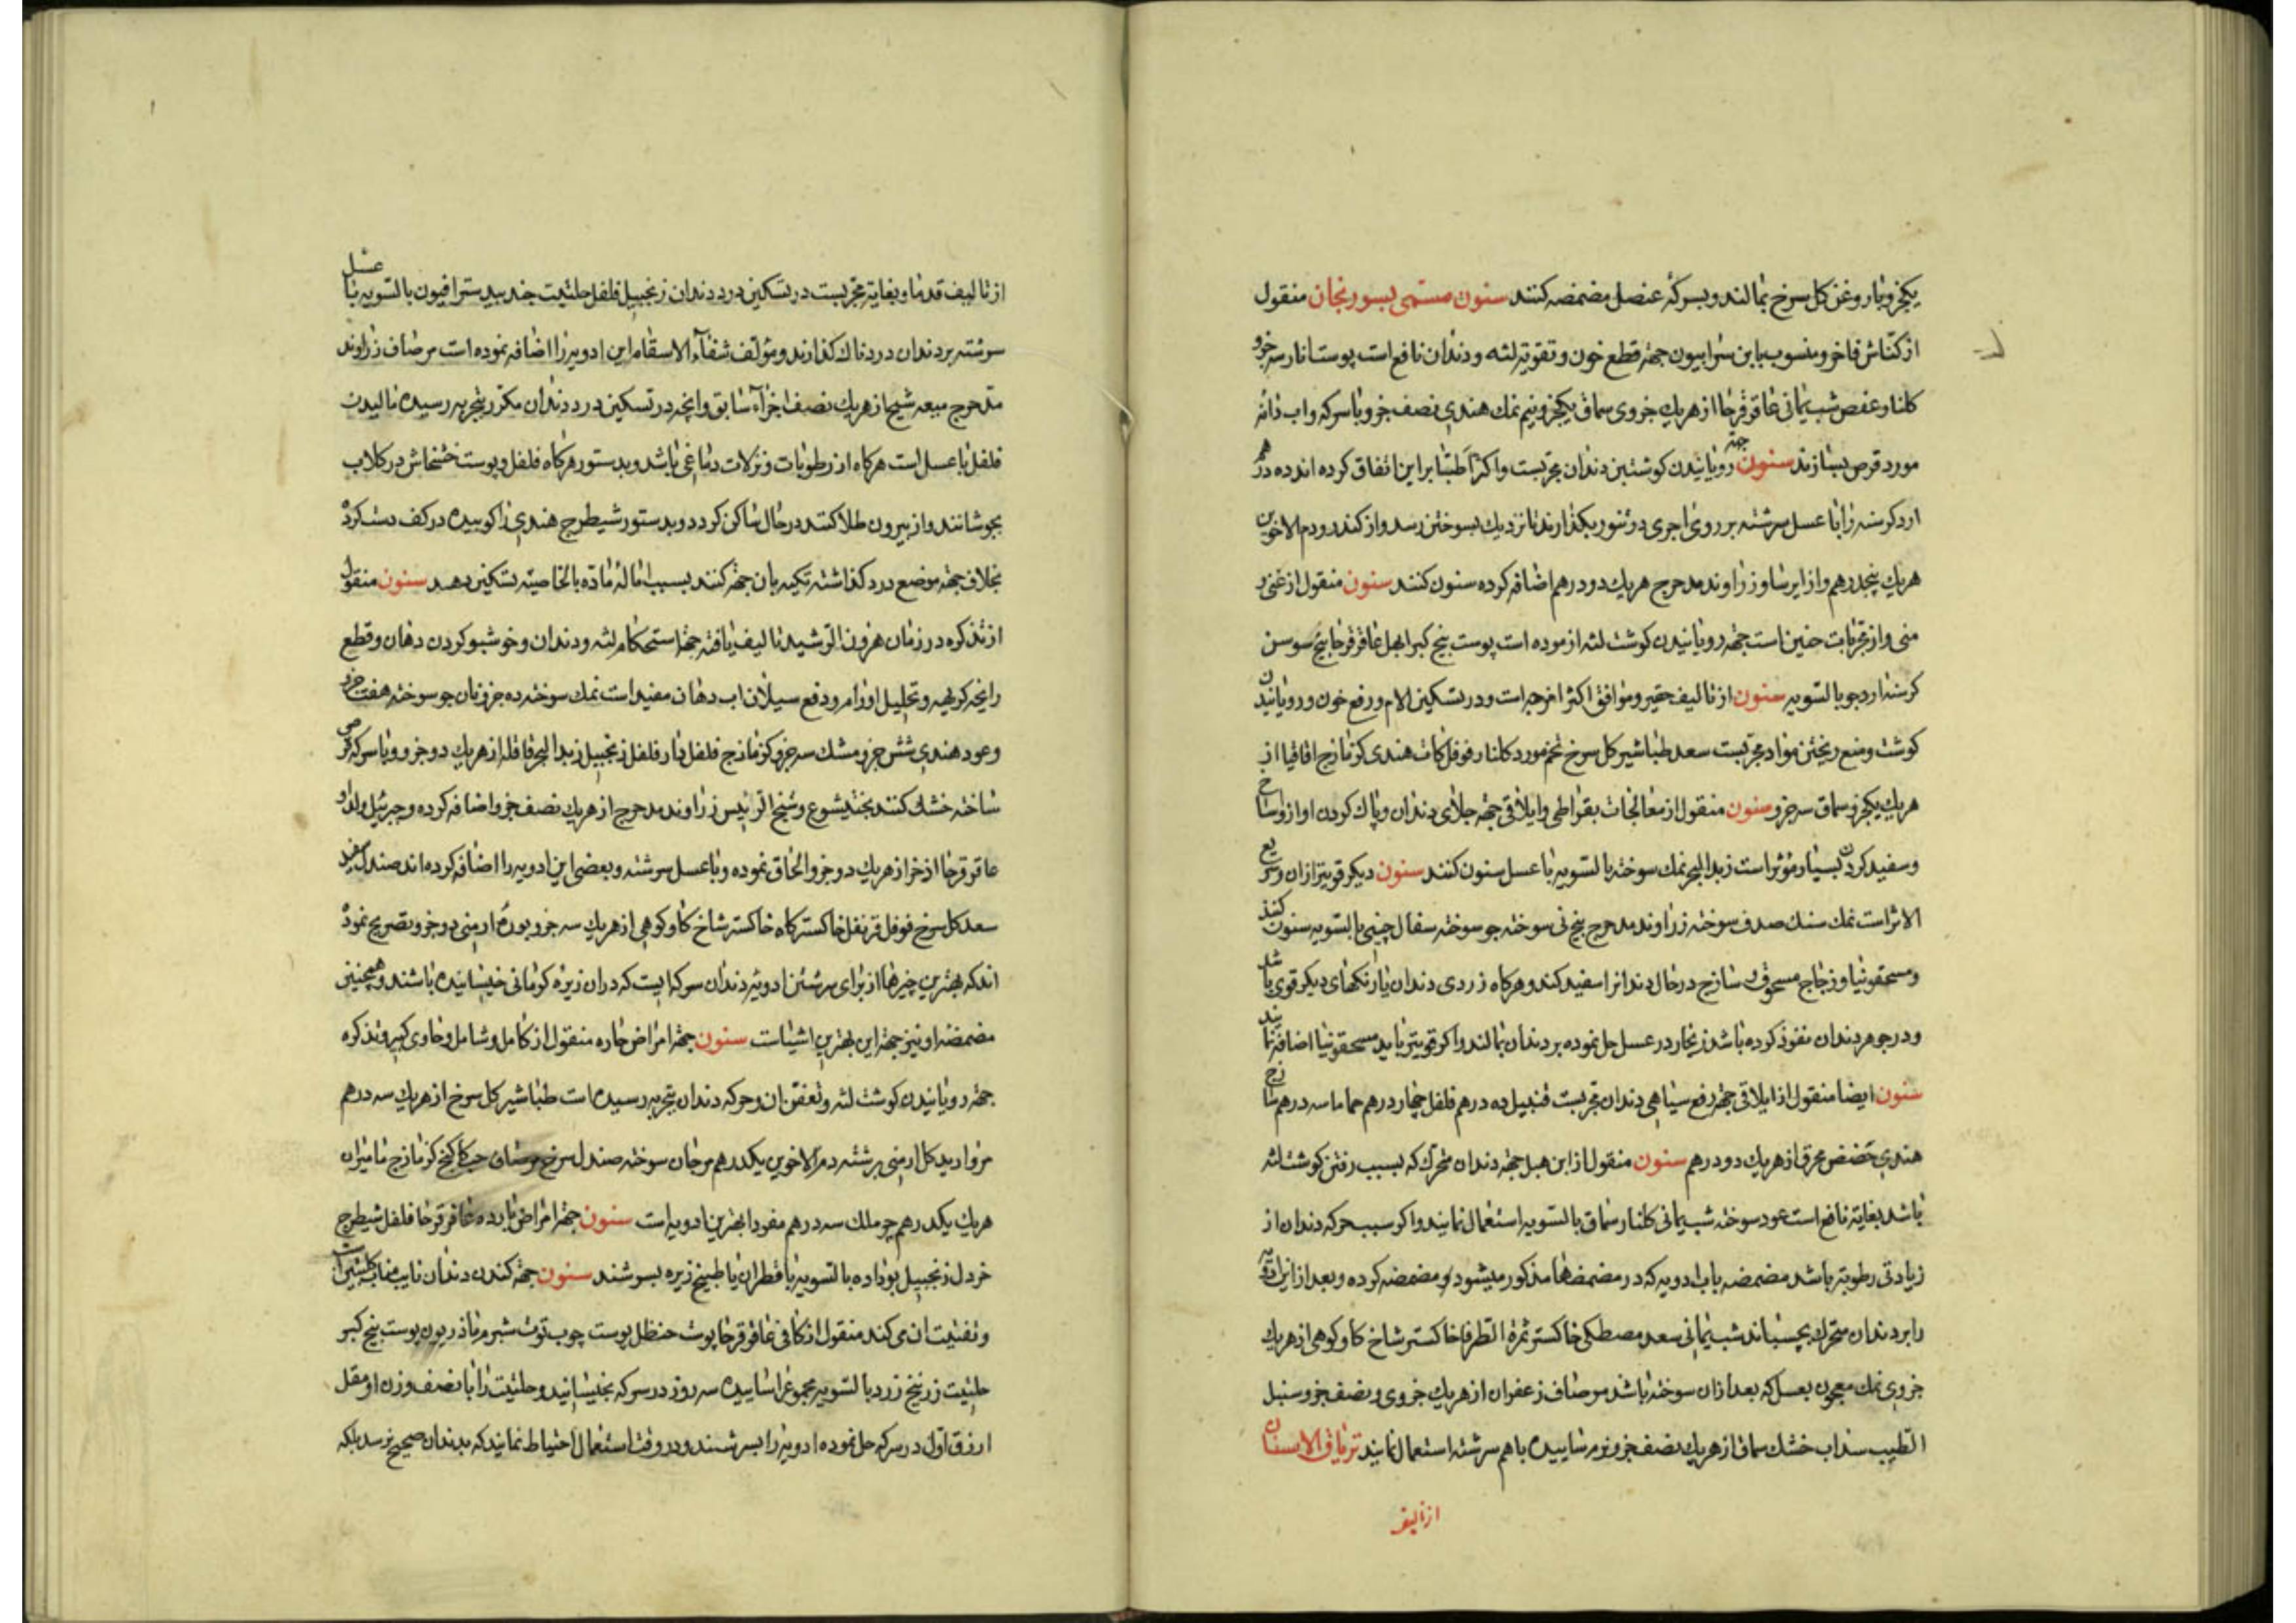 یکجزو با روغن کل سرخ بمالند و بسرکهٔ عنصل مضمضه کنند سنون مسمی بسورنجان منقول
از کناش فاخر و منسوب بابن سرابیون جهة قطع خون و تقویة لثه و دندان نافع است پوست انار سه جزو
کلنار و عفص شب یمانی عاقرقرحا از هریك جزوی سماق یکجزو و نیم نمك هندی نصف جزو با سرکه و اب دانه
مورد قرص بسازند سنون جهة رویانیدن کوشت بن دندان مجربست و اکثر اطبّا بر این اتفاق کرده اند ده درهم
ارد کرسنه را با عسل سرشته بر روی اجری در تنور بکذارند تا نزدیك بسوختن رسد و از کندر و دم الاخوین
هریك پنجدرهم و از ایرسا و زراوند مدحرج هریك دو درهم اضافه کرده سنون کنند سنون منقول از غنی و
منی و از مجربات حنین است جهة رویانیدن کوشت لثه ازموده است پوست بیخ کبر ابهل عاقرقرحا بیخ سوسن
کرسنه ارد جو بالسّویه سنون از تالیف حقیر و موافق اکثر امزجه است و در تسکین الام و رفع خون و رویانیدن
کوشت و منع ریختن مواد مجربست سعد طباشیر کل سرخ تخم مورد کلنار فوفل کات هندی کزمازج اقاقیا از
هریك یکجزو سماق سه جزو سنون منقول از معالجات بقراطی و ایلاقی جهة جلای دندان و پاك کردن او از اوساخ
و سفید کردن بسیار مؤثر است زبد البحر نمك سوخته بالسّویه با عسل سنون کنند سنون دیکر قویتر از ان و سریع
الاثر است نمك سنك صدف سوخته زراوند مدحرج بیخ نی سوخته جو سوخته سفال چینی بالسّویه سنون کنند
و مسحقونیا و زجاج مسحوق و ساذج در حال دندانرا سفید کند و هرکاه زردی دندان یا رنکهای دیکر قوی باشد
و در جوهر دندان نفوذ کرده باشد زنجار در عسل حل نموده بر دندان بمالند و اکر قویتر باید مسحقونیا اضافه نمایند
سنون ایضا منقول از ایلاقی جهة رفع سیاهی دندان مجربست قنبیل ده درهم فلفل چهار درهم حماما سه درهم ساذج
هندی حضض محرق از هریك دو درهم سنون منقول از ابن هبل جهة دندان متحرك که بسبب رفتن کوشت لثه
باشد بغایة نافع است عود سوخته شب یمانی کلنار سماق بالسّویه استعمال نمایند و اکر سبب حرکه دندان از
زیادتی رطوبة باشد مضمضه باب ادویه که در مضمضها مذکور میشود مضمضه کرده و بعد از این ادویه
را بر دندان متحرك بچسباند شب یمانی سعد مصطکی خاکستر ثمرة الطرفا خاکستر شاخ کاو کوهی از هریك
جزوی نمك معجون بعسل که بعد از ان سوخته باشد مرصاف زعفران از هریك جزوی و نصف جزو سنبل
الطیب سداب خشك سماق از هریك نصف جزو نرم ساییده باهم سرشته استعمال نمایند تریاق الاسنان
از تالیف
از تالیف قدما و بغایة مجربست در تسکین درد دندان زنجبیل فلفل حلتیت جند بیدستر افیون بالسّویه با عسل
سرشته بر دندان دردناك کذارند و مؤلف شفاء الاسقام این ادویه را اضافه نموده است مرصاف زراوند
مدحرج میعه شیح از هریك نصف اجزاء سابق و انچه در تسکین درد دندان مکرر بتجربه رسیده مالیدن
فلفل با عسل است هرکاه از رطوبات و نزلات دماغی باشد و بدستور هرکاه فلفل و پوست خشخاش در کلاب
بجوشانند و از بیرون طلا کنند در حال ساکن کردد و بدستور شیطرج هندی را کوبیده در کف دست کرده
بخلاف جهة موضع درد کذاشته تکیه بان جهة کنند بسبب امالهٔ مادّه بالخاصیّة تسکین دهد سنون منقول
از تذکره در زمان هرون الرشید تالیف یافته جهة استحکام لثه و دندان و خوشبو کردن دهان و قطع
رایحه کریهه و تحلیل اورام و دفع سیلان اب دهان مفید است نمك سوخته ده جزو نان جو سوخته هفت جزو
و عود هندی شش جزو مشك سه جزو کزمازج فلفل دار فلفل زنجبیل زبد البحر قاقله از هریك دو جزو و با سرکه قرص
ساخته خشك کنند بختیشوع و شیخ الرئیس زراوند مدحرج از هریك نصف جزو اضافه کرده و جبرئیل ولد او
عاقرقرحا اذخر از هریك دو جزو الحاق نموده و با عسل سرشته و بعضی این ادویه را اضافه کرده اند صندل سفید
سعد کل سرخ فوفل قرنفل خاکستر کاه خاکستر شاخ کاو کوهی از هریك سه جزو بورهٔ ارمنی دو جزو و تصریح نموده
اند که بهترین چیزها از برای سرشتن ادویهٔ دندان سرکه ایست که در ان زیره کرمانی خیسانیده باشند و همچنین
مضمضه او نیز جهة این بهترین اشیاست سنون جهة امراض حاره منقول از کامل و شامل و حاوی کبیر و تذکره
جهة رویانیدن کوشت لثه و تعفن ان و حرکه دندان بتجربه رسیده است طباشیر کل سرخ از هریك سه درهم
مروارید کل ارمنی برشته دم الاخوین یکدرهم مرجان سوخته صندل سرخ مرصاف کزمازج مامیران
هریك یکدرهم جو ملك سه درهم مفردا بهترین ادویه است سنون جهة امراض بارده عاقرقرحا فلفل شیطرج
خردل زنجبیل بوداده بالسّویه با قطران یا طبیخ زیره بسرشند سنون جهة کندن دندان نایب مناب کلبتین است
و تفتیت ان می کند منقول از کافی عاقرقرحا پوست حنظل پوست چوب توت شبرم ماذریون پوست بیخ کبر
حلتیت زرنیخ زرد بالسّویه مجموع را ساییده سه روز در سرکه بخیسانید و حلتیت را با نصف وزن او مقل
ازرق اول در سرکه حل نموده ادویه را بسرشند و در وقت استعمال احتیاط نمایند که بدندان صحیح نرسد بلکه